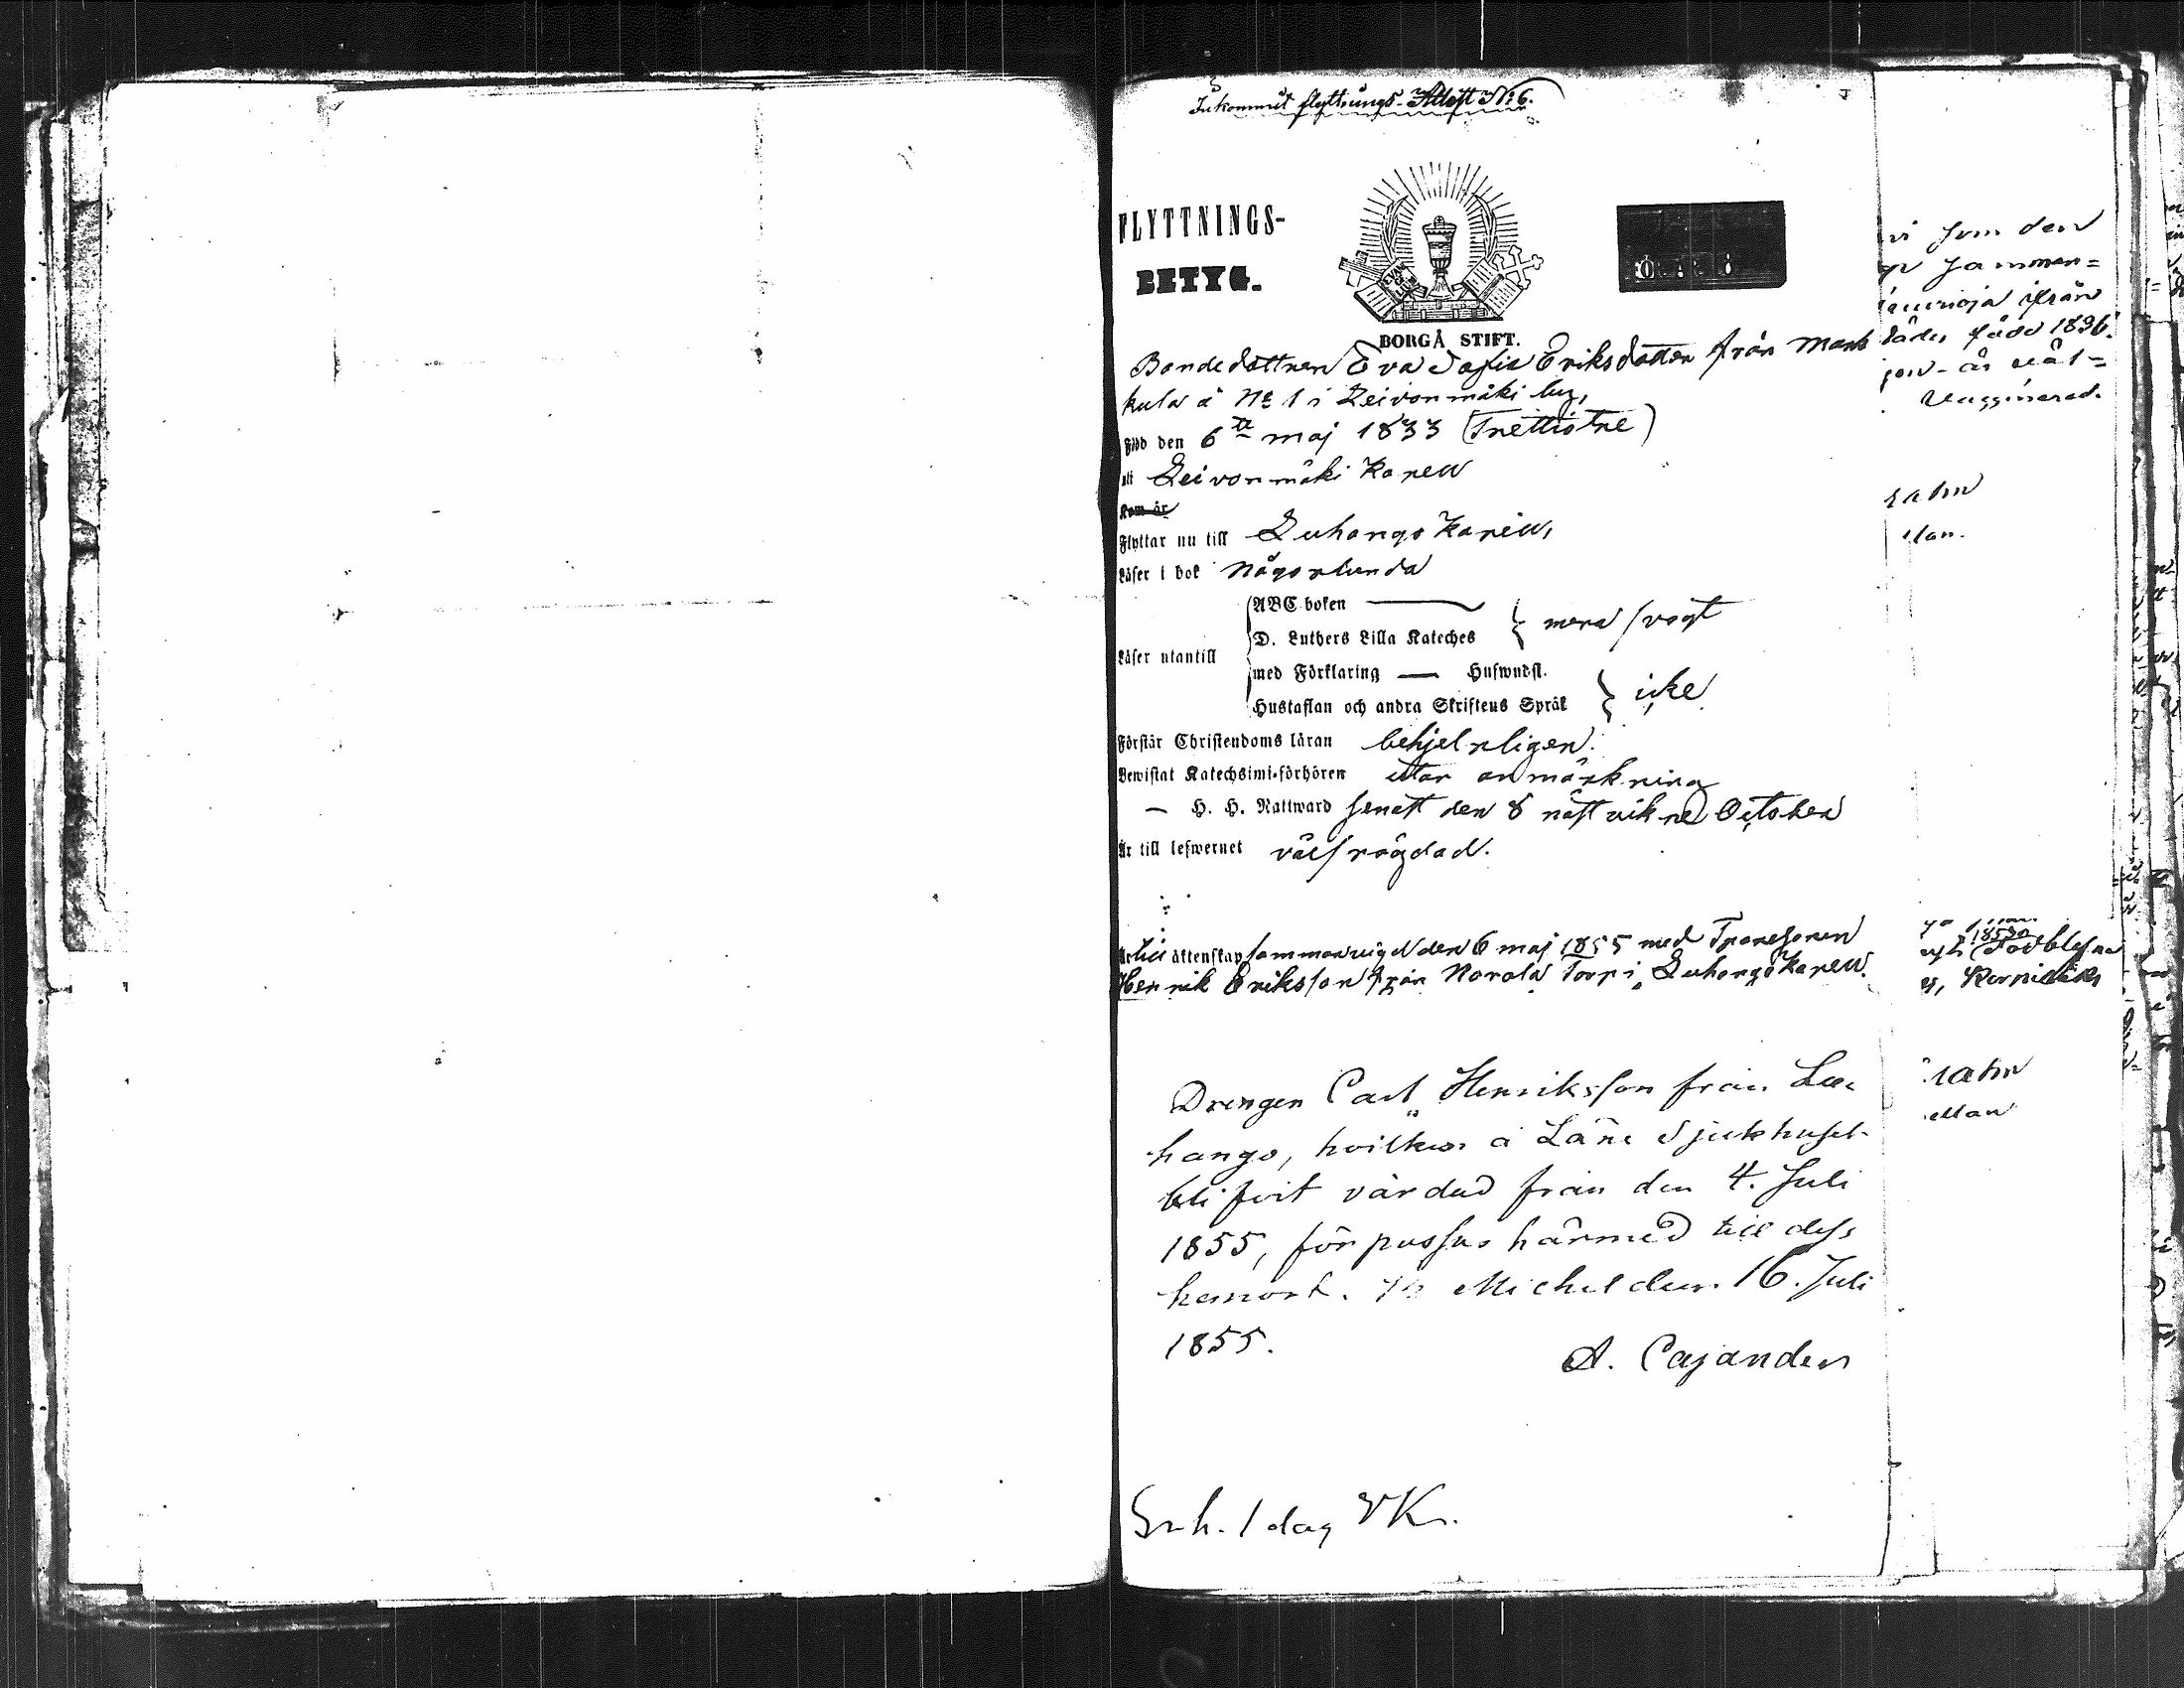 Inkommit flyttnings-Attest No 6.
FLYTTNINGS-
BETYG.
BORGÅ STIFT.
Bondedottren Eva Sofia Eriksdotter från Mark
kula å No 1 i Leivonmäki by,
Född den 6te maj 1833 (Trettiotre)
uti Leivonmäki Kapell
Kom år
Flyttar nu till Luhango Kapell,
Läser i bok någorlunda
ABC boken
D. Luthers Lilla Kateches } mera svagt
Läser utantill
med Förklaring — Huswudst.
Hustaflan och andra Skriftens Språk } icke
Förstår Christendoms läran behjelpligen.
Bewistat Katechsimi-förhören utan anmärkning
— H. H. Nattward senast den 8 nästvikne October
Är till lefwernet välfrägdad.
äktenskap sammanvigd den 6 maj 1855 med Torparesonen
Henrik Eriksson från Norola Torp i Luhango Kapell.
Drengen Carl Henriksson från Lu-
hango, hvilken å Läns Sjukhuset
blifvit vårdad från den 4. Juli
1855, förpassas härmed till dess
hemort. St Michel den 16. Juli
1855.
A. Cajander
1 dag
vi som den
Jammen=
ifrån
född 1836.
är väl=
Vaccinerad.